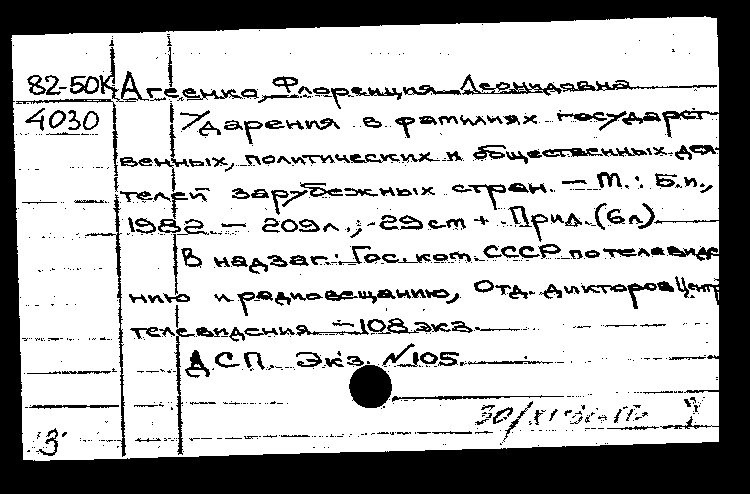 82-50К Агеенко, Флоренция Леонидовна
4030 Ударения в фамилиях государст-
венных, политических и общественных дея-
телей зарубежных стран. — М.: Б.и.,
1982 — 209л.; 29 см + Прил. (6л)
В надзаг.: Гос. ком. СССР по телевиде
нию и радиовещанию, Отд. дикторов Центр
телевидения — 108 экз.
ДСП. Экз. №105.
30/XI
13